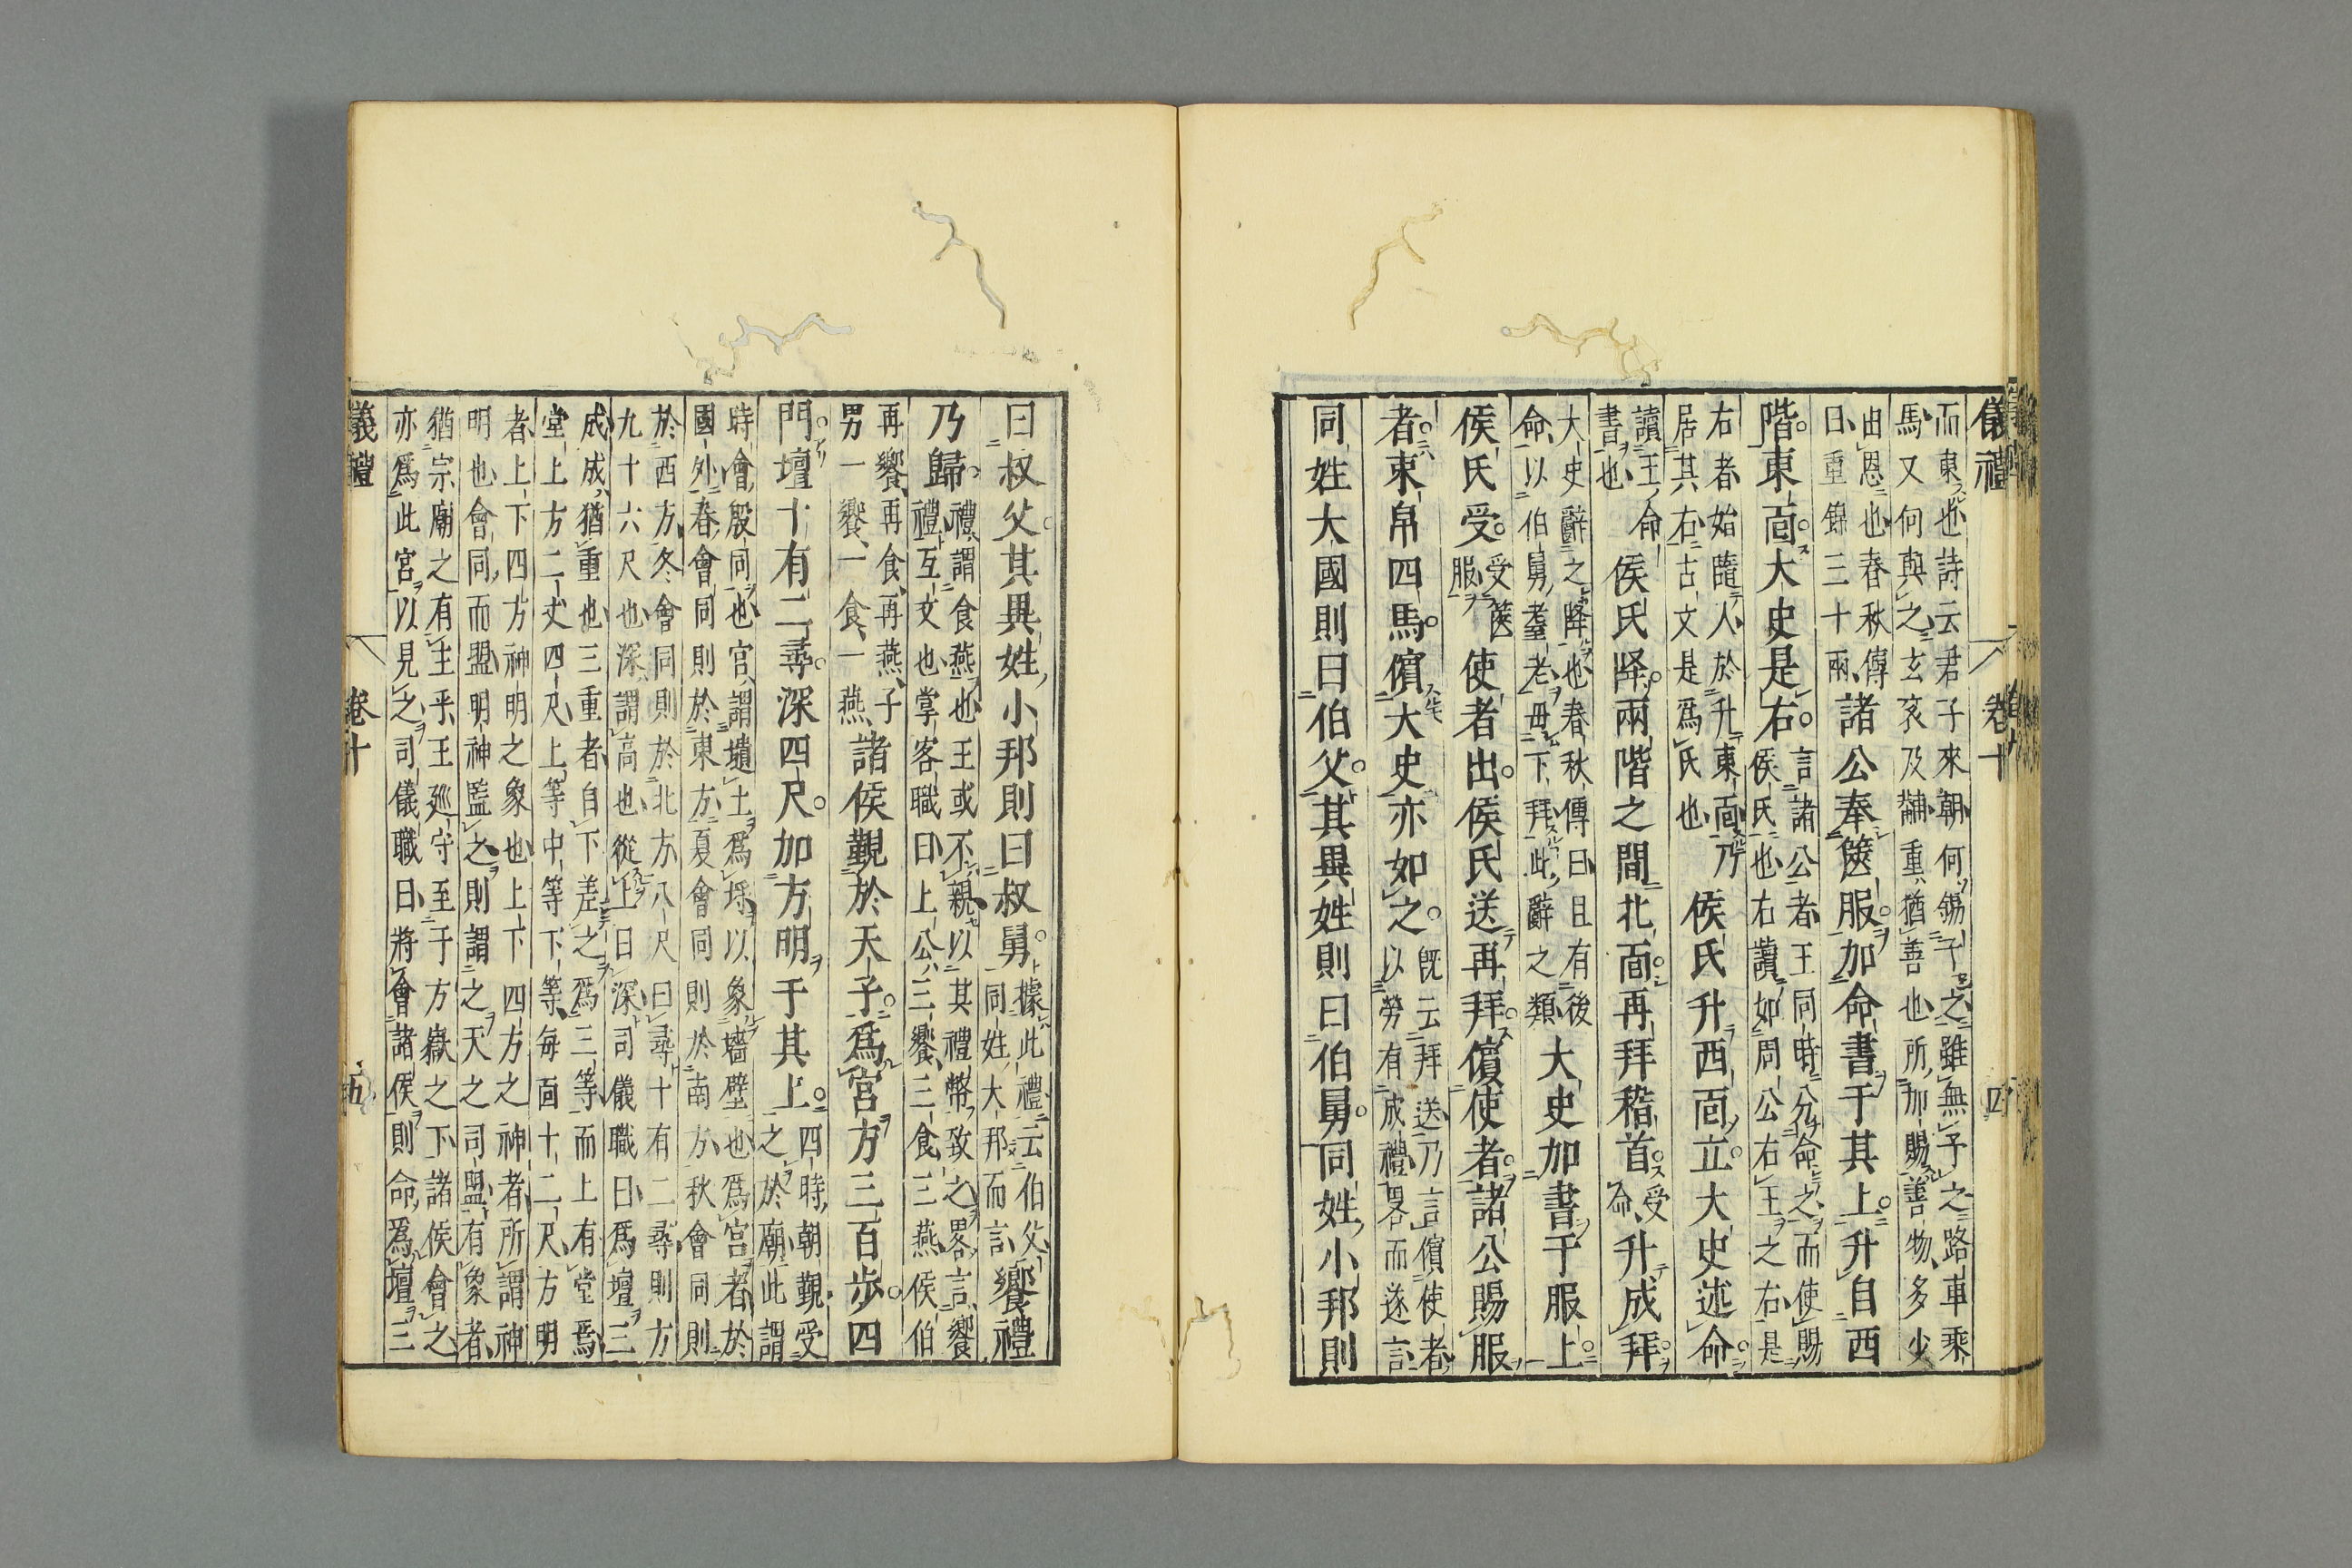 儀禮　卷十　四
而東也詩云君子來朝何錫予之雖無予之路車乘
馬又何與之玄袞及黼重猶善也所加賜善物多少
由恩也春秋傳曰重錦三十兩諸公奉篋服加命書于其上升自西
階東面大史是右言諸公者王同時分命之而使賜侯氏也右讀如周公右王之右是
右者始隨人於升東面乃居其右古文是爲氏也侯氏升西面立大史述命
讀王命書也侯氏降兩階之間北面再拜稽首受命升成拜
大史辭之降也春秋傳曰且有後命以伯舅耋老毋下拜此辭之類大史加書于服上
侯氏受受篋服使者出侯氏送再拜儐使者諸公賜服
者束帛四馬儐大史亦如之既云拜送乃言儐使者以勞有成禮畧而遂言
同姓大國則曰伯父其異姓則曰伯舅同姓小邦則
曰叔父其異姓小邦則曰叔舅據此禮云伯父同姓大邦而言饗禮
乃歸禮謂食燕也王或不親以其禮幣致之畧言饗禮互文也掌客職曰上公三饗三食三燕侯伯
再饗再食再燕子男一饗一食一燕諸侯覲於天子爲宮方三百步四
門壇十有二尋深四尺加方明于其上四時朝覲受之於廟此謂
時會殷同也宮謂壝土爲埒以象墻壁也爲宮者於
國外春會同則於東方夏會同則於南方秋會同則
於西方冬會同則於北方八尺曰尋十有二尋則方
九十六尺也深謂高也從上曰深司儀職曰爲壇三
成成猶重也三重者自下差之爲三等而上有堂焉
堂上方二丈四尺上等中等下等每面十二尺方明
者上下四方神明之象也上下四方之神者所謂神
明也會同而盟明神監之則謂之天之司盟有象者
猶宗廟之有主乎王廵守至于方嶽之下諸侯會之
亦爲此宮以見之司儀職曰將會諸侯則命爲壇三
儀禮　卷十　五